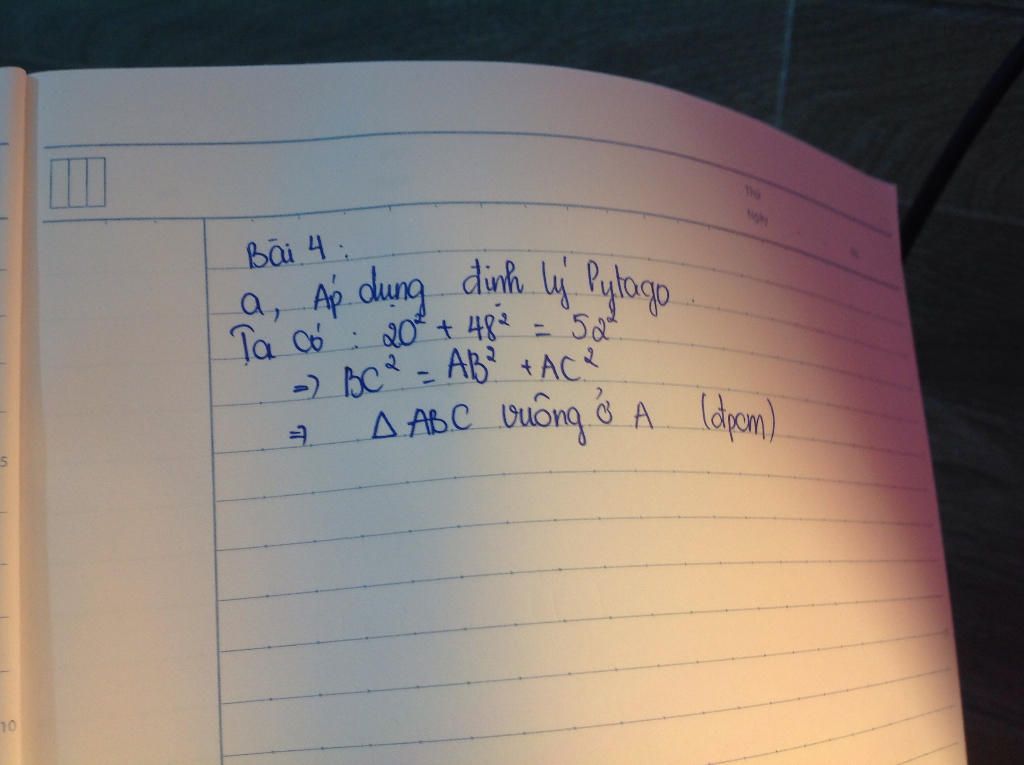 Thứ
Ngày
Bài 4 :
a, Áp dụng định lý Pytago.
Ta có : 20² + 48² = 52²
=> BC² = AB² + AC²
=> Δ ABC vuông ở A (đpcm)
5
10